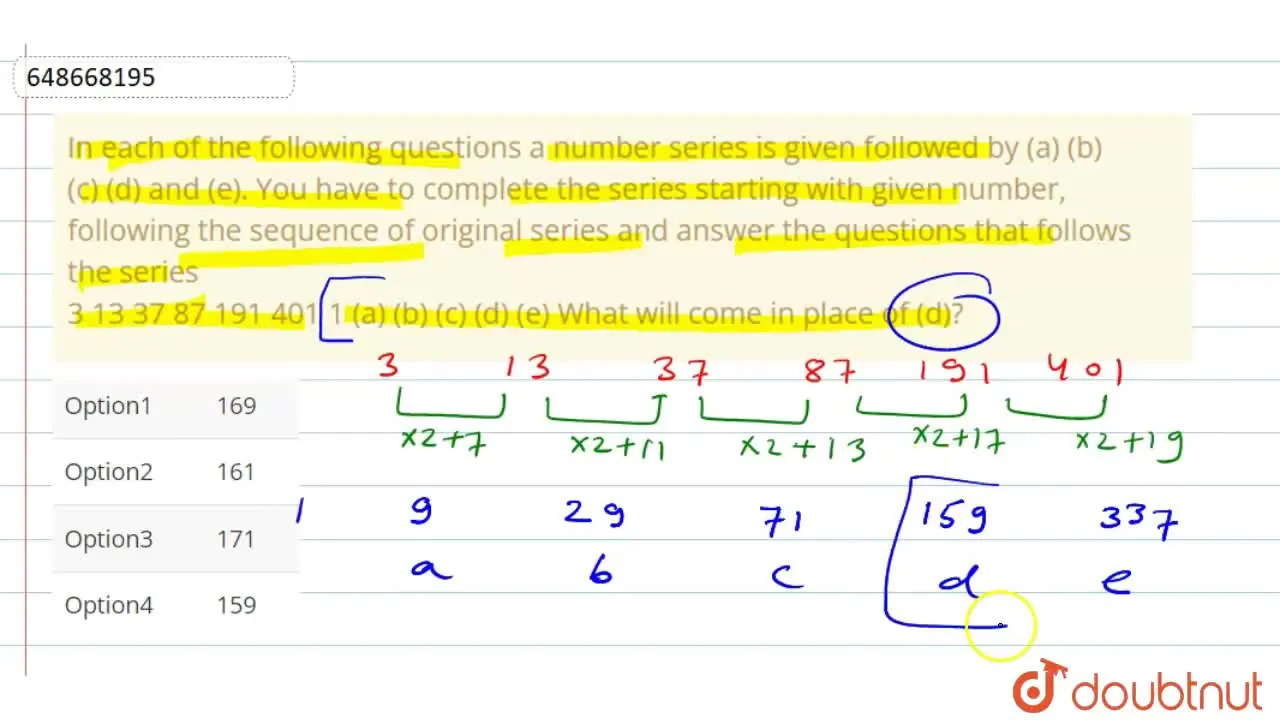 648668195
In each of the following questions a number series is given followed by (a) (b)
(c) (d) and (e). You have to complete the series starting with given number,
following the sequence of original series and answer the questions that follows
the series
3 13 37 87 191 401 1 (a) (b) (c) (d) (e) What will come in place of (d)?
3 13 37 87 191 401
Option1 169
×2+7 ×2+11 ×2+13 ×2+17 ×2+19
Option2 161
1 9 29 71 159 337
Option3 171
a b c d e
Option4 159
doubtnut